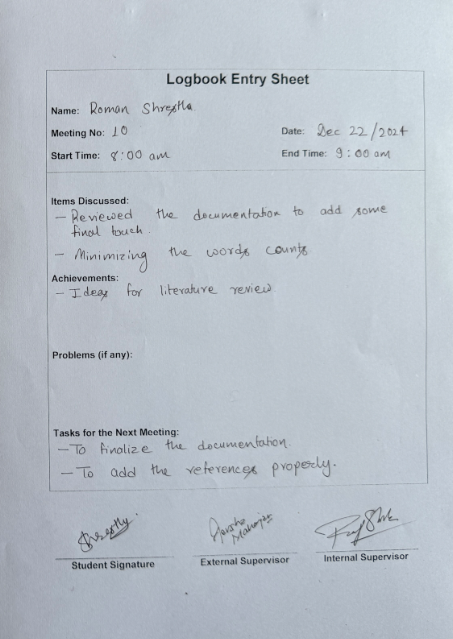 Logbook Entry Sheet
Name: Roman Shrestha
Meeting No: 10 Date: Dec 22/2024
Start Time: 8:00 am End Time: 9:00 am
Items Discussed:
- Reviewed the documentation to add some
final touch.
- Minimizing the words counts
Achievements:
- Ideas for literature review
Problems (if any):
Tasks for the Next Meeting:
- To finalize the documentation
- To add the references properly.
Student Signature External Supervisor Internal Supervisor